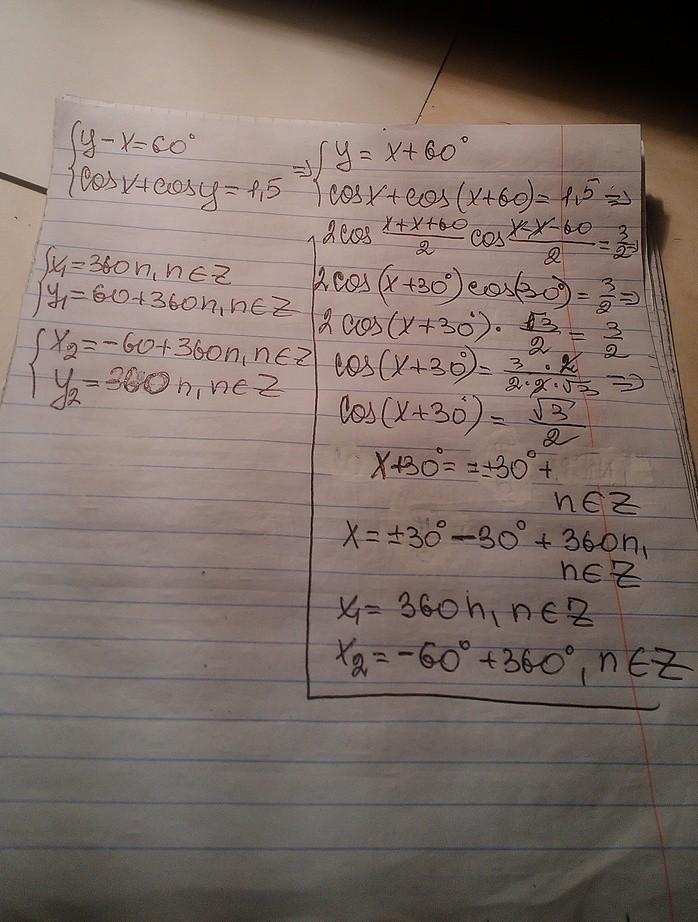 { y - x = 60°
{ cosx + cosy = 1,5 ⇒
{ y = x + 60°
{ cosx + cos(x+60) = 1,5 ⇒
2cos (x+x+60)/2 cos (x-x-60)/2 = 3/2 ⇒
2cos(x+30°)cos(30°) = 3/2 ⇒
2cos(x+30°) · √3/2 = 3/2
cos(x+30°) = (3·2)/(2·2·√3) ⇒
cos(x+30°) = √3/2
x+30° = ±30° +
n∈Z
x = ±30° - 30° + 360n,
n∈Z
x₁ = 360n, n∈Z
x₂ = -60° + 360°, n∈Z
{ x₁ = 360n, n∈Z
{ y₁ = 60+360n, n∈Z
{ x₂ = -60+360n, n∈Z
{ y₂ = 360n, n∈Z